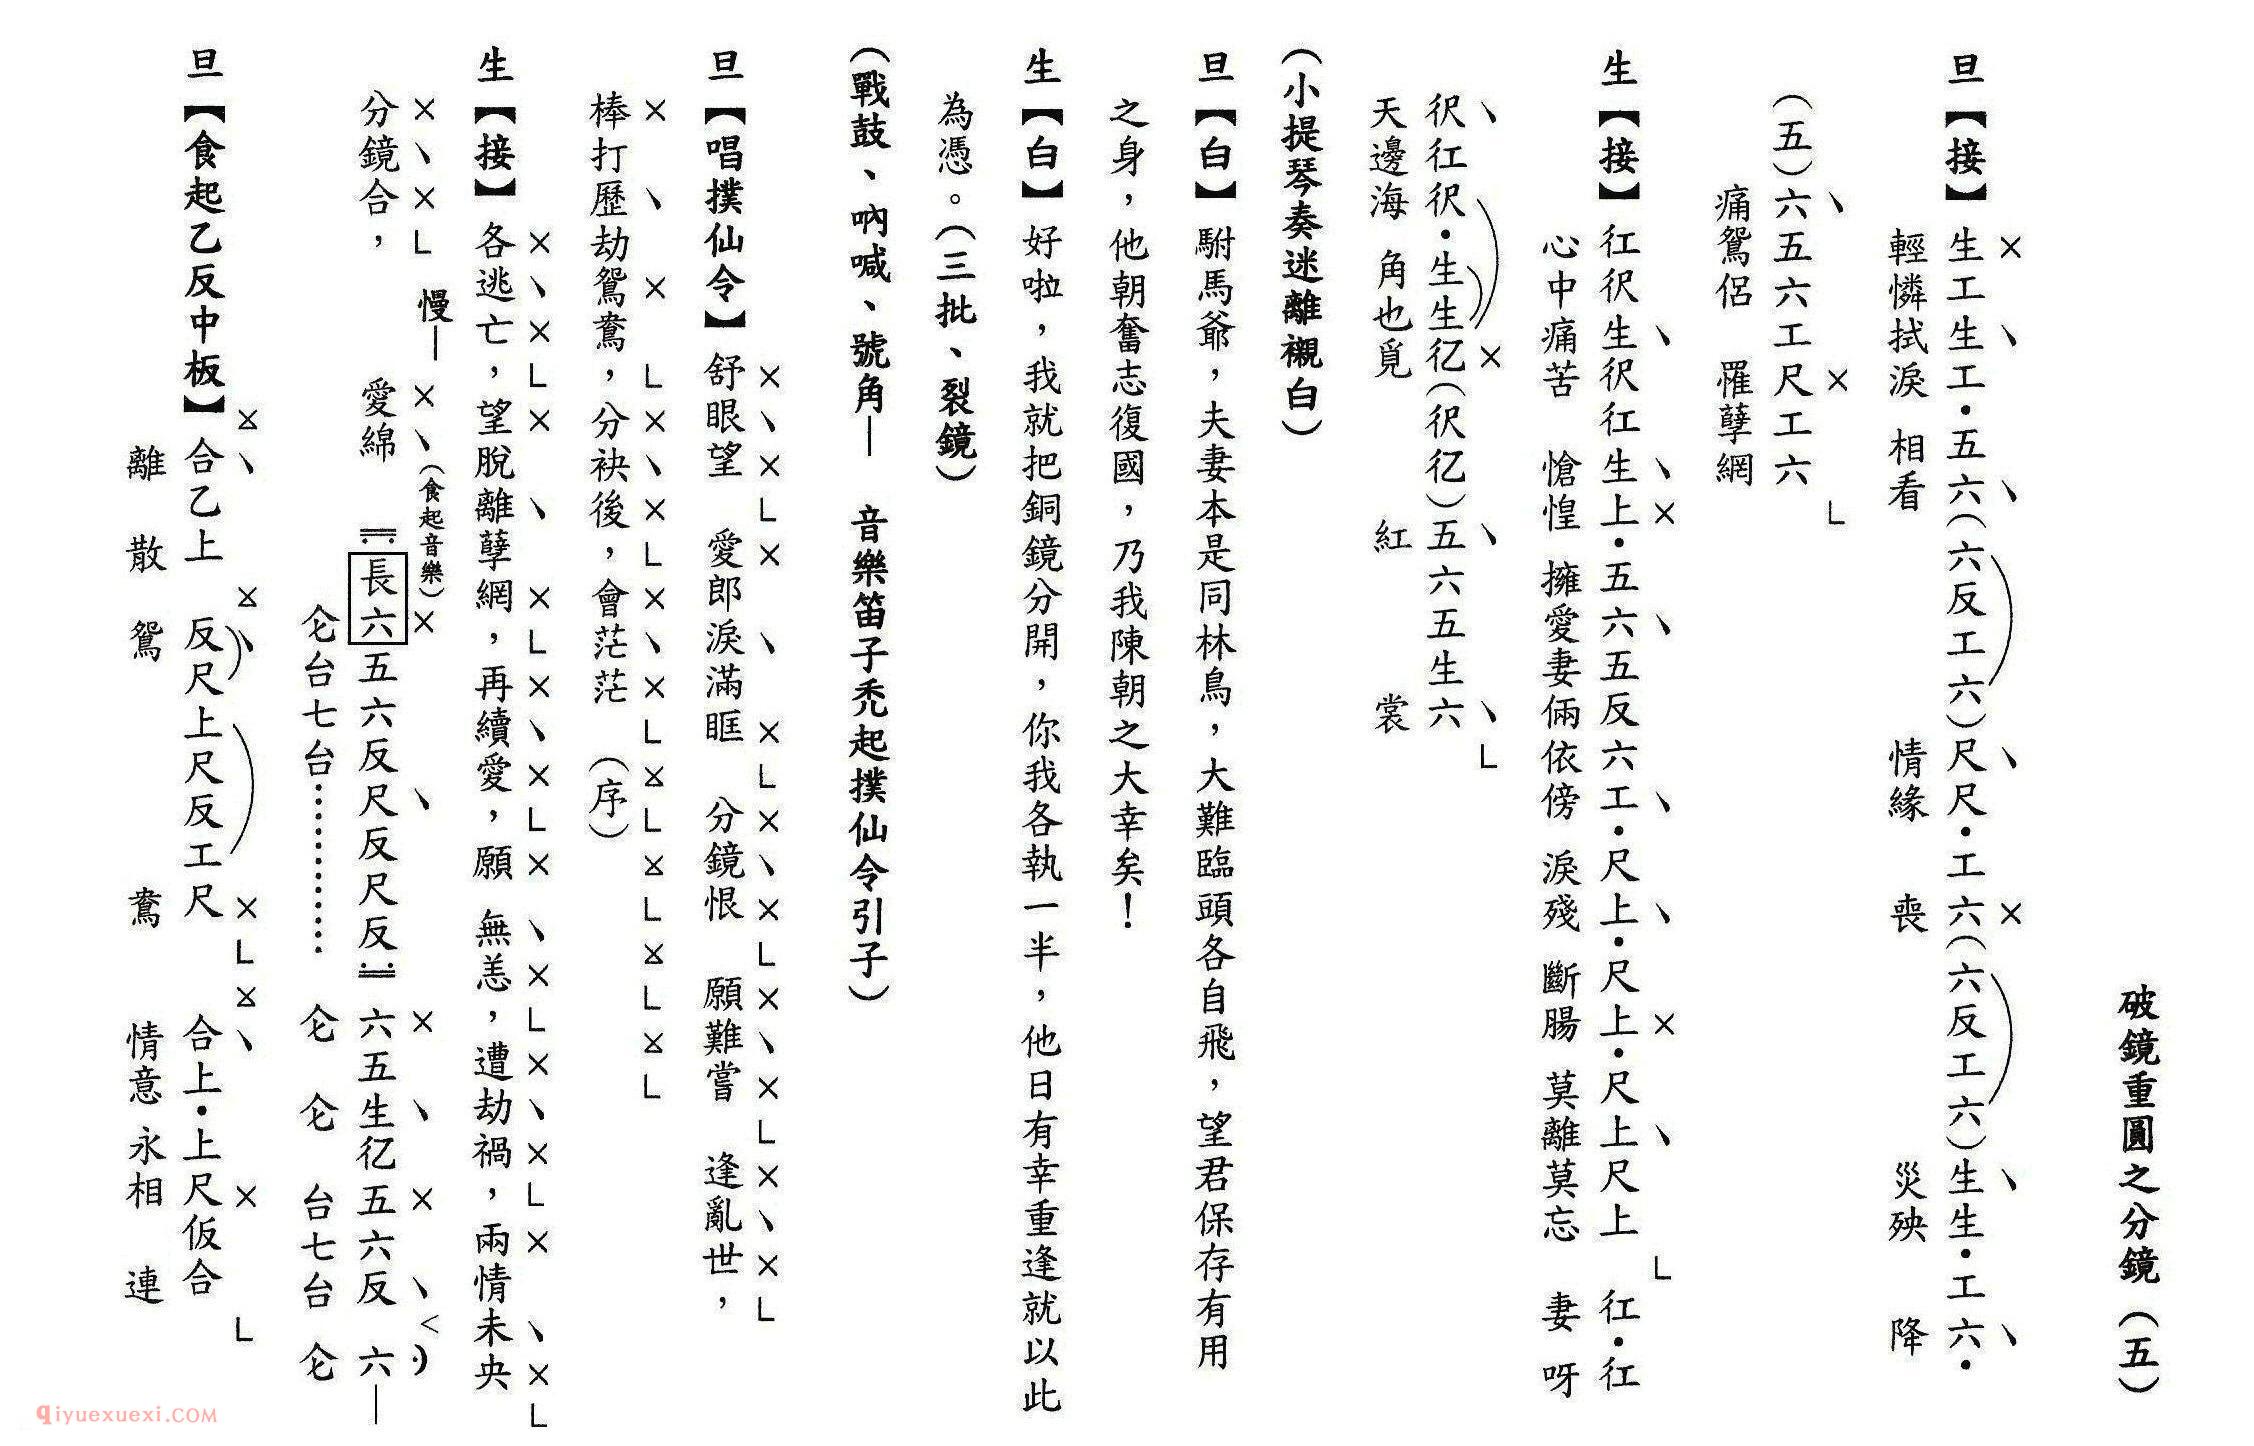 破鏡重圓之分鏡（五）
旦【接】生工生工·五六（六反工六）尺尺·工六（六反工六）生生·工六·
輕憐拭淚 相看 情緣 喪 災殃 降
（五）六五六工尺工六
痛鴛侶 罹孽網
生【接】仜伬生伬仜生上·五六五反六工·尺上·尺上·尺上尺上 仜·仜
心中痛苦 愴惶 擁愛妻倆依傍 淚殘 斷腸 莫離莫忘 妻呀
伬仜伬·生生亿（伬亿）五六五生六
天邊海 角也覓 紅 裳
（小提琴奏迷離襯白）
旦【白】駙馬爺，夫妻本是同林鳥，大難臨頭各自飛，望君保存有用
之身，他朝奮志復國，乃我陳朝之大幸矣！
生【白】好啦，我就把銅鏡分開，你我各執一半，他日有幸重逢就以此
為憑。（三批、裂鏡）
（戰鼓、吶喊、號角— 音樂笛子禿起撲仙令引子）
旦【唱撲仙令】舒眼望 愛郎淚滿眶 分鏡恨 願難嘗 逢亂世，
棒打歷劫鴛鴦，分袂後，會茫茫 （序）
生【接】各逃亡，望脫離孽網，再續愛，願 無恙，遭劫禍，兩情未央
分鏡合， 慢— 愛綿 （食起音樂） 長六五六反尺反尺反 六五生亿五六反 六—
仑台七台………… 仑 仑 台七台 仑
旦【食起乙反中板】合乙上 反尺上尺反工尺 合上·上尺仮合
離 散 鴛 鴦 情意永相 連
qiyuexuexi.COM